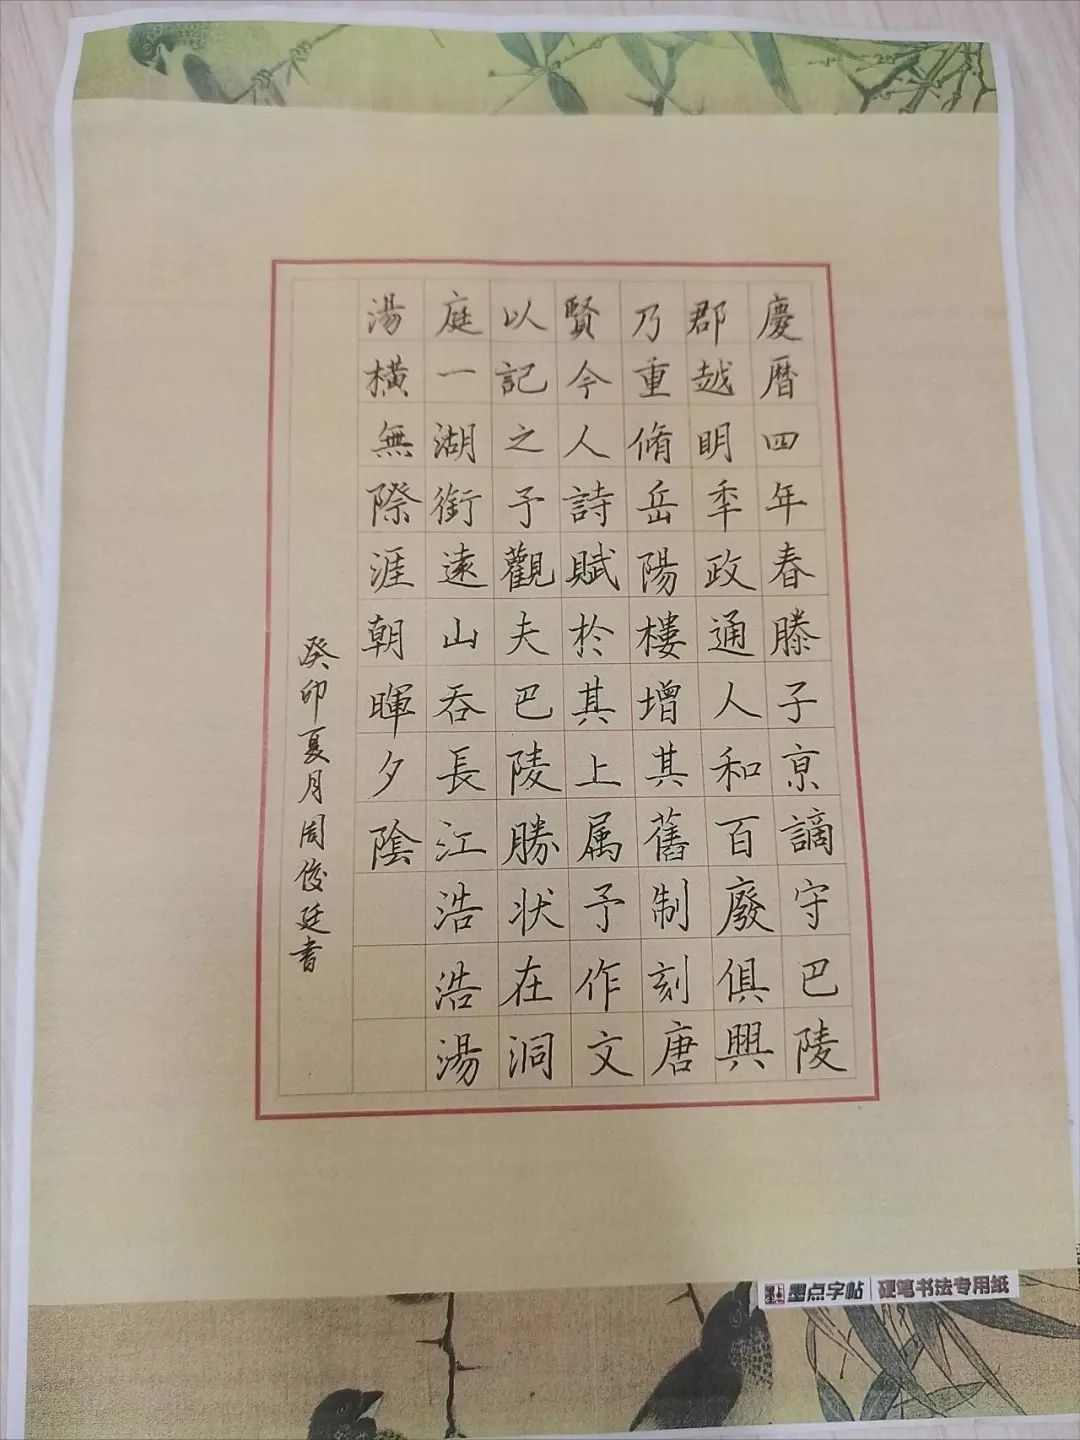 慶曆四年春滕子京謫守巴陵
郡越明季政通人和百廢俱興
乃重脩岳陽樓增其舊制刻唐
賢今人詩賦於其上属予作文
以記之予觀夫巴陵勝状在洞
庭一湖銜遠山吞長江浩浩湯
湯橫無際涯朝暉夕陰
癸卯夏月周俊廷書
墨点字帖 硬笔书法专用纸